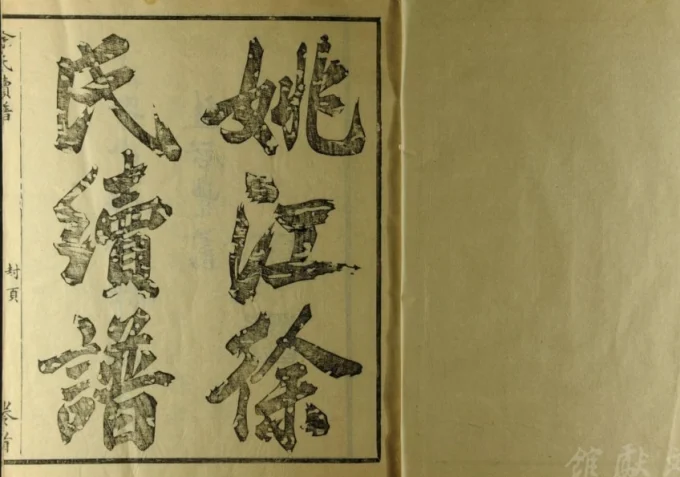 姚江徐
氏續譜
徐氏續譜
封頁
卷首
獻館